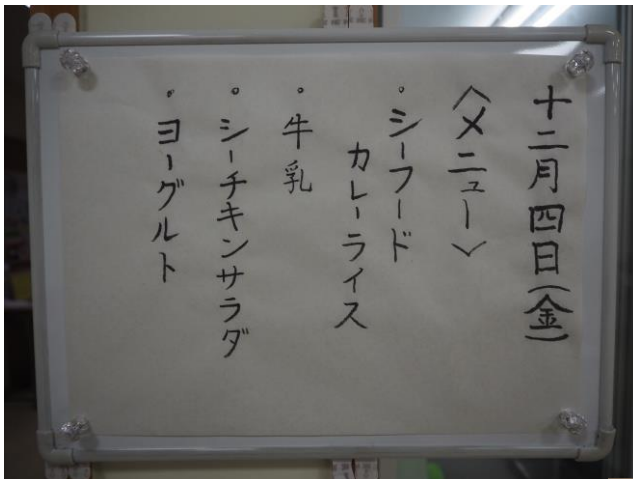 十二月四日(金)
〈メニュー〉
・シーフード
カレーライス
・牛乳
・シーチキンサラダ
・ヨーグルト